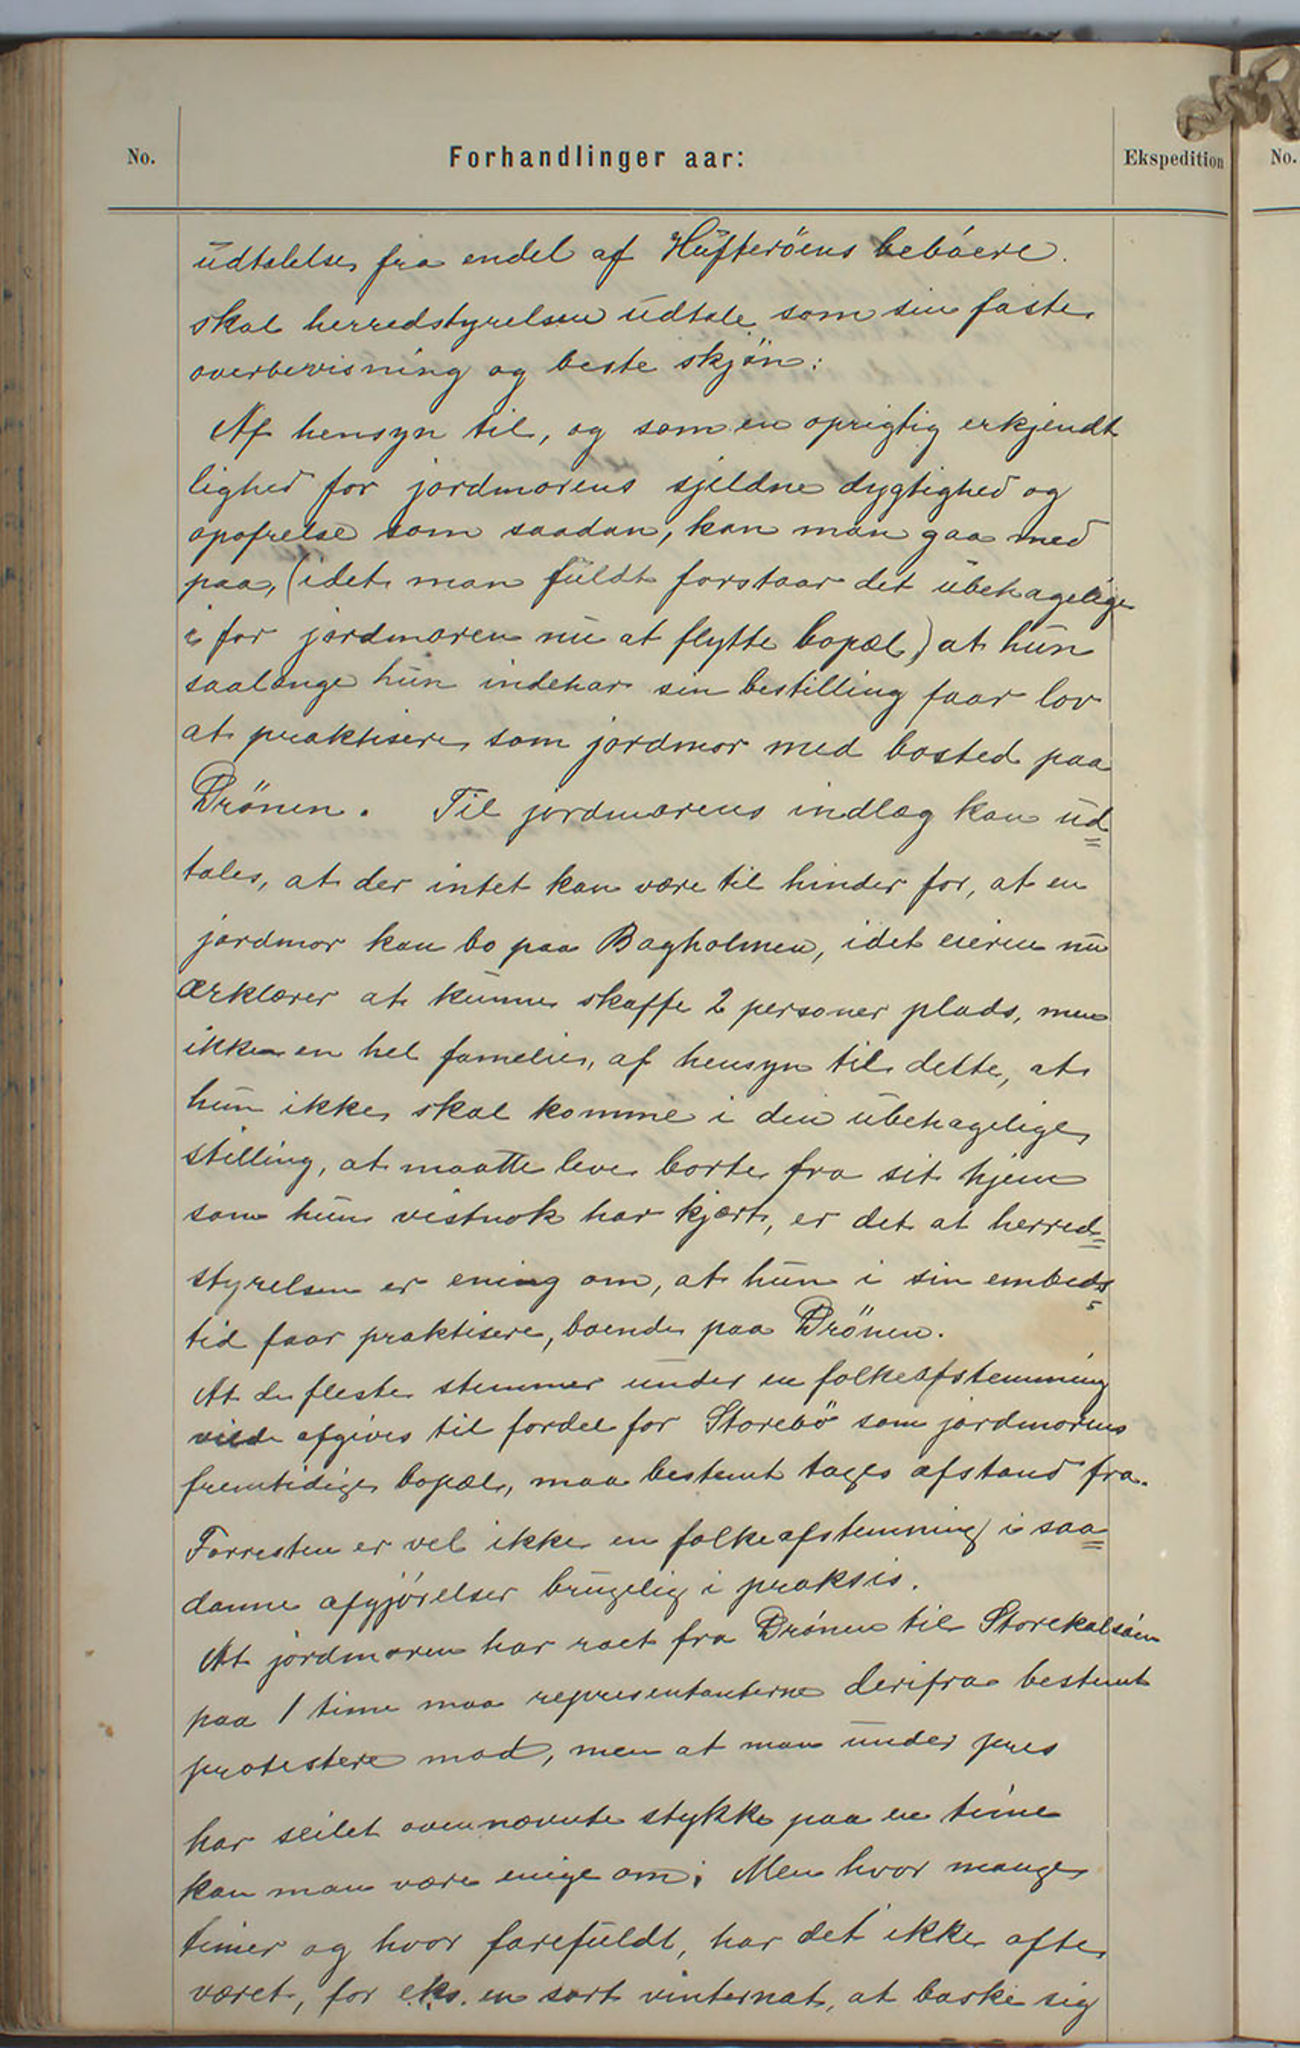 No.
Forhandlinger aar:
Ekspedition
No.
udtalelse fra endel af Hufteröens beboere.
skal herredstyrelsen udtale som sin faste
overbevisning og beste skjön:
Af hensyn til, og som en oprigtig erkjendt
lighed for jordmorens sjeldne dygtighed og
opofrelse som saadan, kan man gaa med
paa, (idet man fuldt forstaar det ubehagelige
i for jordmoren nu at flytte bopæl) at hun
saalænge hun indehar sin bestilling faar lov
at praktisere som jordmor med bosted paa
Drönen. Til jordmorens indlæg kan ud=
tales, at der intet kan være til hinder for, at en
jordmor kan bo paa Bagholmen, idet eieren nu
erklærer at kunne skaffe 2 personer plads, men
ikke en hel familie, af hensyn til dette, at
hun ikke skal komme i den ubehagelige
stilling, at maatte leve borte fra sit hjem
som hun vistnok har kjært, er det at herred=
styrelsen er enig om, at hun i sin embeds
tid faar praktisere, boende paa Drönen.
At de fleste stemmer under en folkeafstemning
vilde afgives til fordel for Storebö som jordmorens
fremtidige bopæl, maa bestemt tages afstand fra.
Forresten er vel ikke en folkeafstemning i saa=
danne afgjörelser brugelig i praksis.
At jordmoren har roet fra Drönen til Storekalsöen
paa 1 time maa representanterne derifra bestemt
protestere mod, men at man under pres
har seilet ovennævnte stykke paa en time
kan man være enige om; Men hvor mange
timer og hvor farefuldt, har det ikke ofte
været, for eks. en sort vinternat, at baske sig